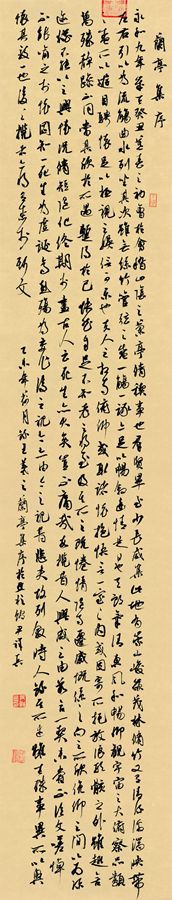 蘭亭集序
永和九年歲在癸丑暮春之初會於會稽山陰之蘭亭修禊事也群賢畢至少長咸集此地有崇山峻嶺茂林修竹又有清流激湍映帶
左右引以為流觴曲水列坐其次雖無絲竹管弦之盛一觴一詠亦足以暢敘幽情是日也天朗氣清惠風和暢仰觀宇宙之大俯察品類
之盛所以遊目騁懷足以極視聽之娛信可樂也夫人之相與俯仰一世或取諸懷抱悟言一室之內或因寄所託放浪形骸之外雖趣舍
萬殊靜躁不同當其欣於所遇暫得於己快然自足不知老之將至及其所之既倦情隨事遷感慨係之矣向之所欣俛仰之間以為陳
迹猶不能不以之興懷況修短隨化終期於盡古人云死生亦大矣豈不痛哉每攬昔人興感之由若合一契未嘗不臨文嗟悼
不能喻之於懷固知一死生為虛誕齊彭殤為妄作後之視今亦由今之視昔悲夫故列敘時人錄其所述雖世殊事異所以興
懷其致一也後之攬者亦將有感於斯文
乙未年月錄王羲之蘭亭集序於